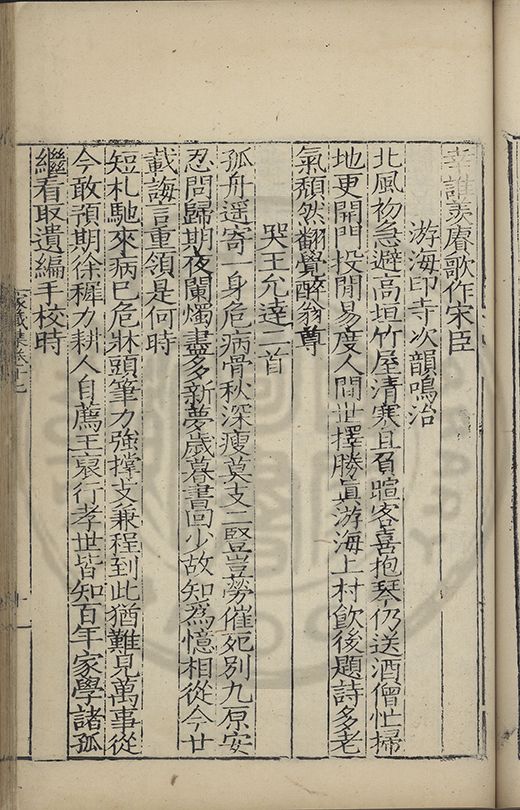 幸誰羨賡歌作宋臣
游海印寺次韻鳴治
北風初急避高垣竹屋清寒且負暄客喜抱琴仍送酒僧忙掃
地更開門投閒易度人間世擇勝真游海上村飲後題詩多老
氣頹然翻覺醉翁尊
哭王允達二首
孤舟遥寄一身危病骨秋深瘦莫支二豎豈勞催死別九原安
忍問歸期夜闌燭盡多新夢歲暮書回少故知爲憶相從今廿
載誨言重領是何時
短札馳來病已危牀頭筆力強撐支兼程到此猶難見萬事從
今敢預期徐穉力耕人自薦王裒行孝世皆知百年家學諸孤
繼看取遺編手校時
家藏集卷十七